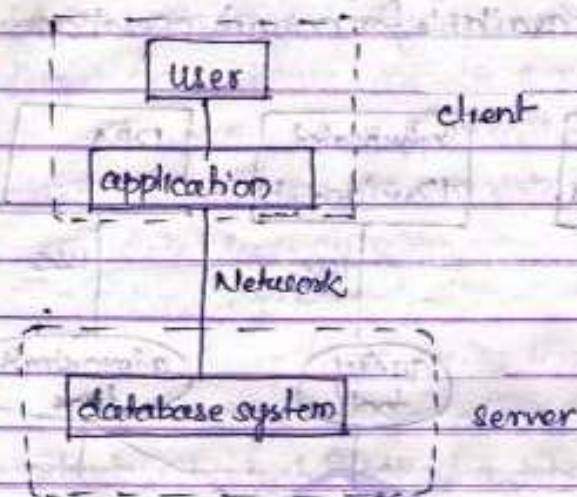 User
client
application
Network
database system
server